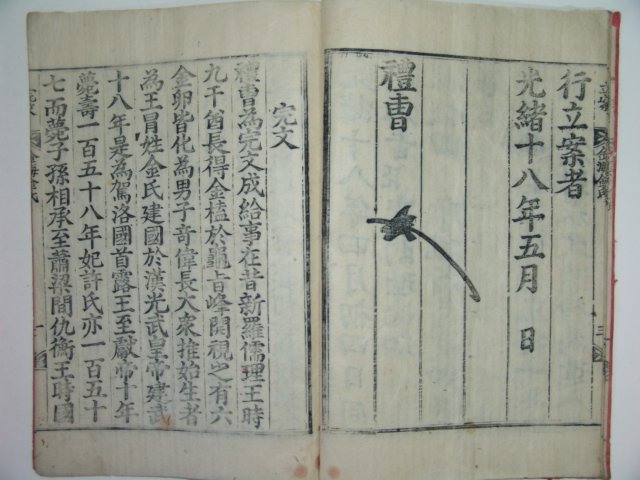 行立案者
光緖十八年五月 日
禮曹
完文
禮曹爲完文成給事在昔新羅儒理王時
九干酋長得金榼於龜旨峰開視之有六
金卵皆化爲男子奇偉長大衆推始生者
為王冒姓金氏建國於漢光武皇帝建武
十八年是為駕洛國首露王至獻帝十年
薨壽一百五十八年妃許氏亦一百五十
七而薨子孫相承至蕭梁間仇衡王時國